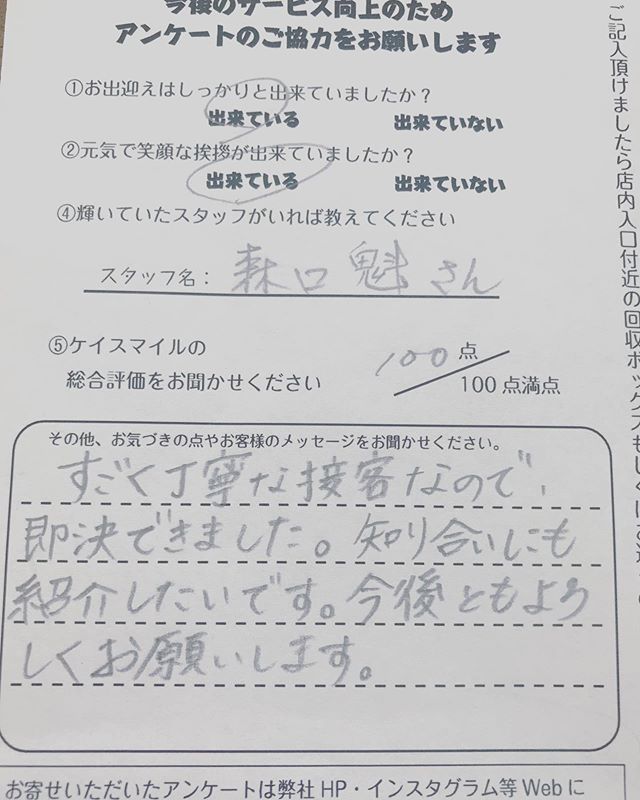 今後のサービス向上のため
アンケートのご協力をお願いします
①お出迎えはしっかりと出来ていましたか？
出来ている 出来ていない
②元気で笑顔な挨拶が出来ていましたか？
出来ている 出来ていない
④輝いていたスタッフがいれば教えてください
スタッフ名： 森口 魁 さん
⑤ケイスマイルの
総合評価をお聞かせください
100 点
100 点満点
その他、お気づきの点やお客様のメッセージをお聞かせください。
すごく丁寧な接客なので、
即決できました。知り合いにも
紹介したいです。今後ともよろ
しくお願いします。
お寄せいただいたアンケートは弊社 HP・インスタグラム等 Web に
ご記入頂けましたら店内入口付近の回収ボックスもしくは